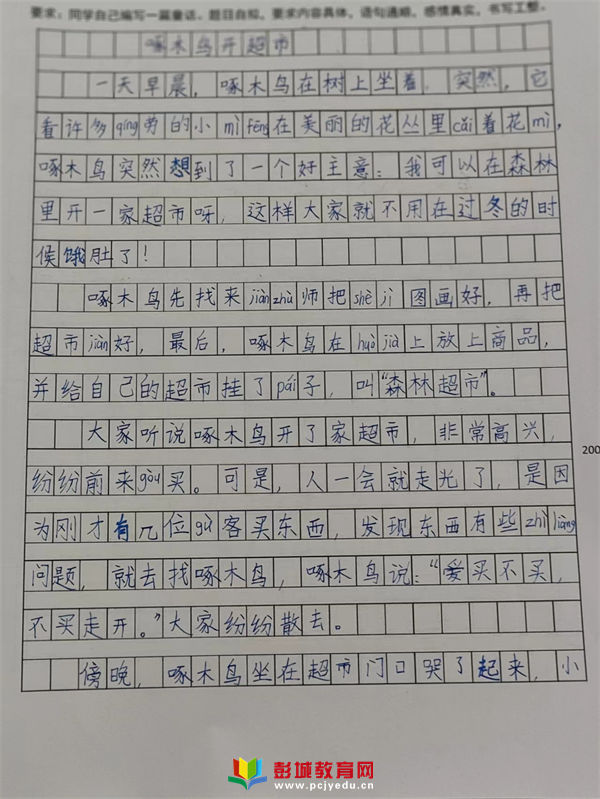 要求：同学自己编写一篇童话。题目自拟。要求内容具体，语句通顺，感情真实，书写工整。
啄木鸟开超市
一天早晨，啄木鸟在树上坐着，突然，它
看许多qíng劳的小mì fēng在美丽的花丛里cǎi着花mì，
啄木鸟突然想到了一个好主意：我可以在森林
里开一家超市呀，这样大家就不用在过冬的时
侯饿肚了！
啄木鸟先找来jiàn zhù师把shè jì图画好，再把
超市jiàn好，最后，啄木鸟在huò jià上放上商品，
并给自己的超市挂了pái子，叫“森林超市”。
大家听说啄木鸟开了家超市，非常高兴，
纷纷前来gòu买。可是，人一会就走光了，是因
为刚才有几位gù客买东西，发现东西有些zhì liàng
问题，就去找啄木鸟，啄木鸟说：“爱买不买，
不买走开。”大家纷纷散去。
傍晚，啄木鸟坐在超市门口哭了起来，小
200
彭城教育网
www.pcjyedu.cn